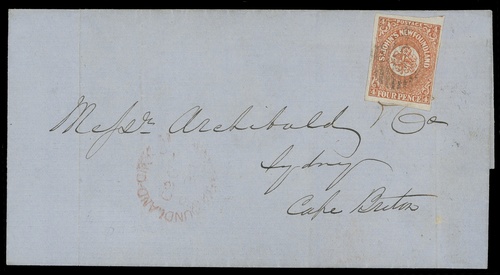 POSTAGE
ST. JOHN'S NEWFOUNDLAND
FOUR PENCE
Messrs Archibald & Co
Sydney
Cape Breton
UNDLAND